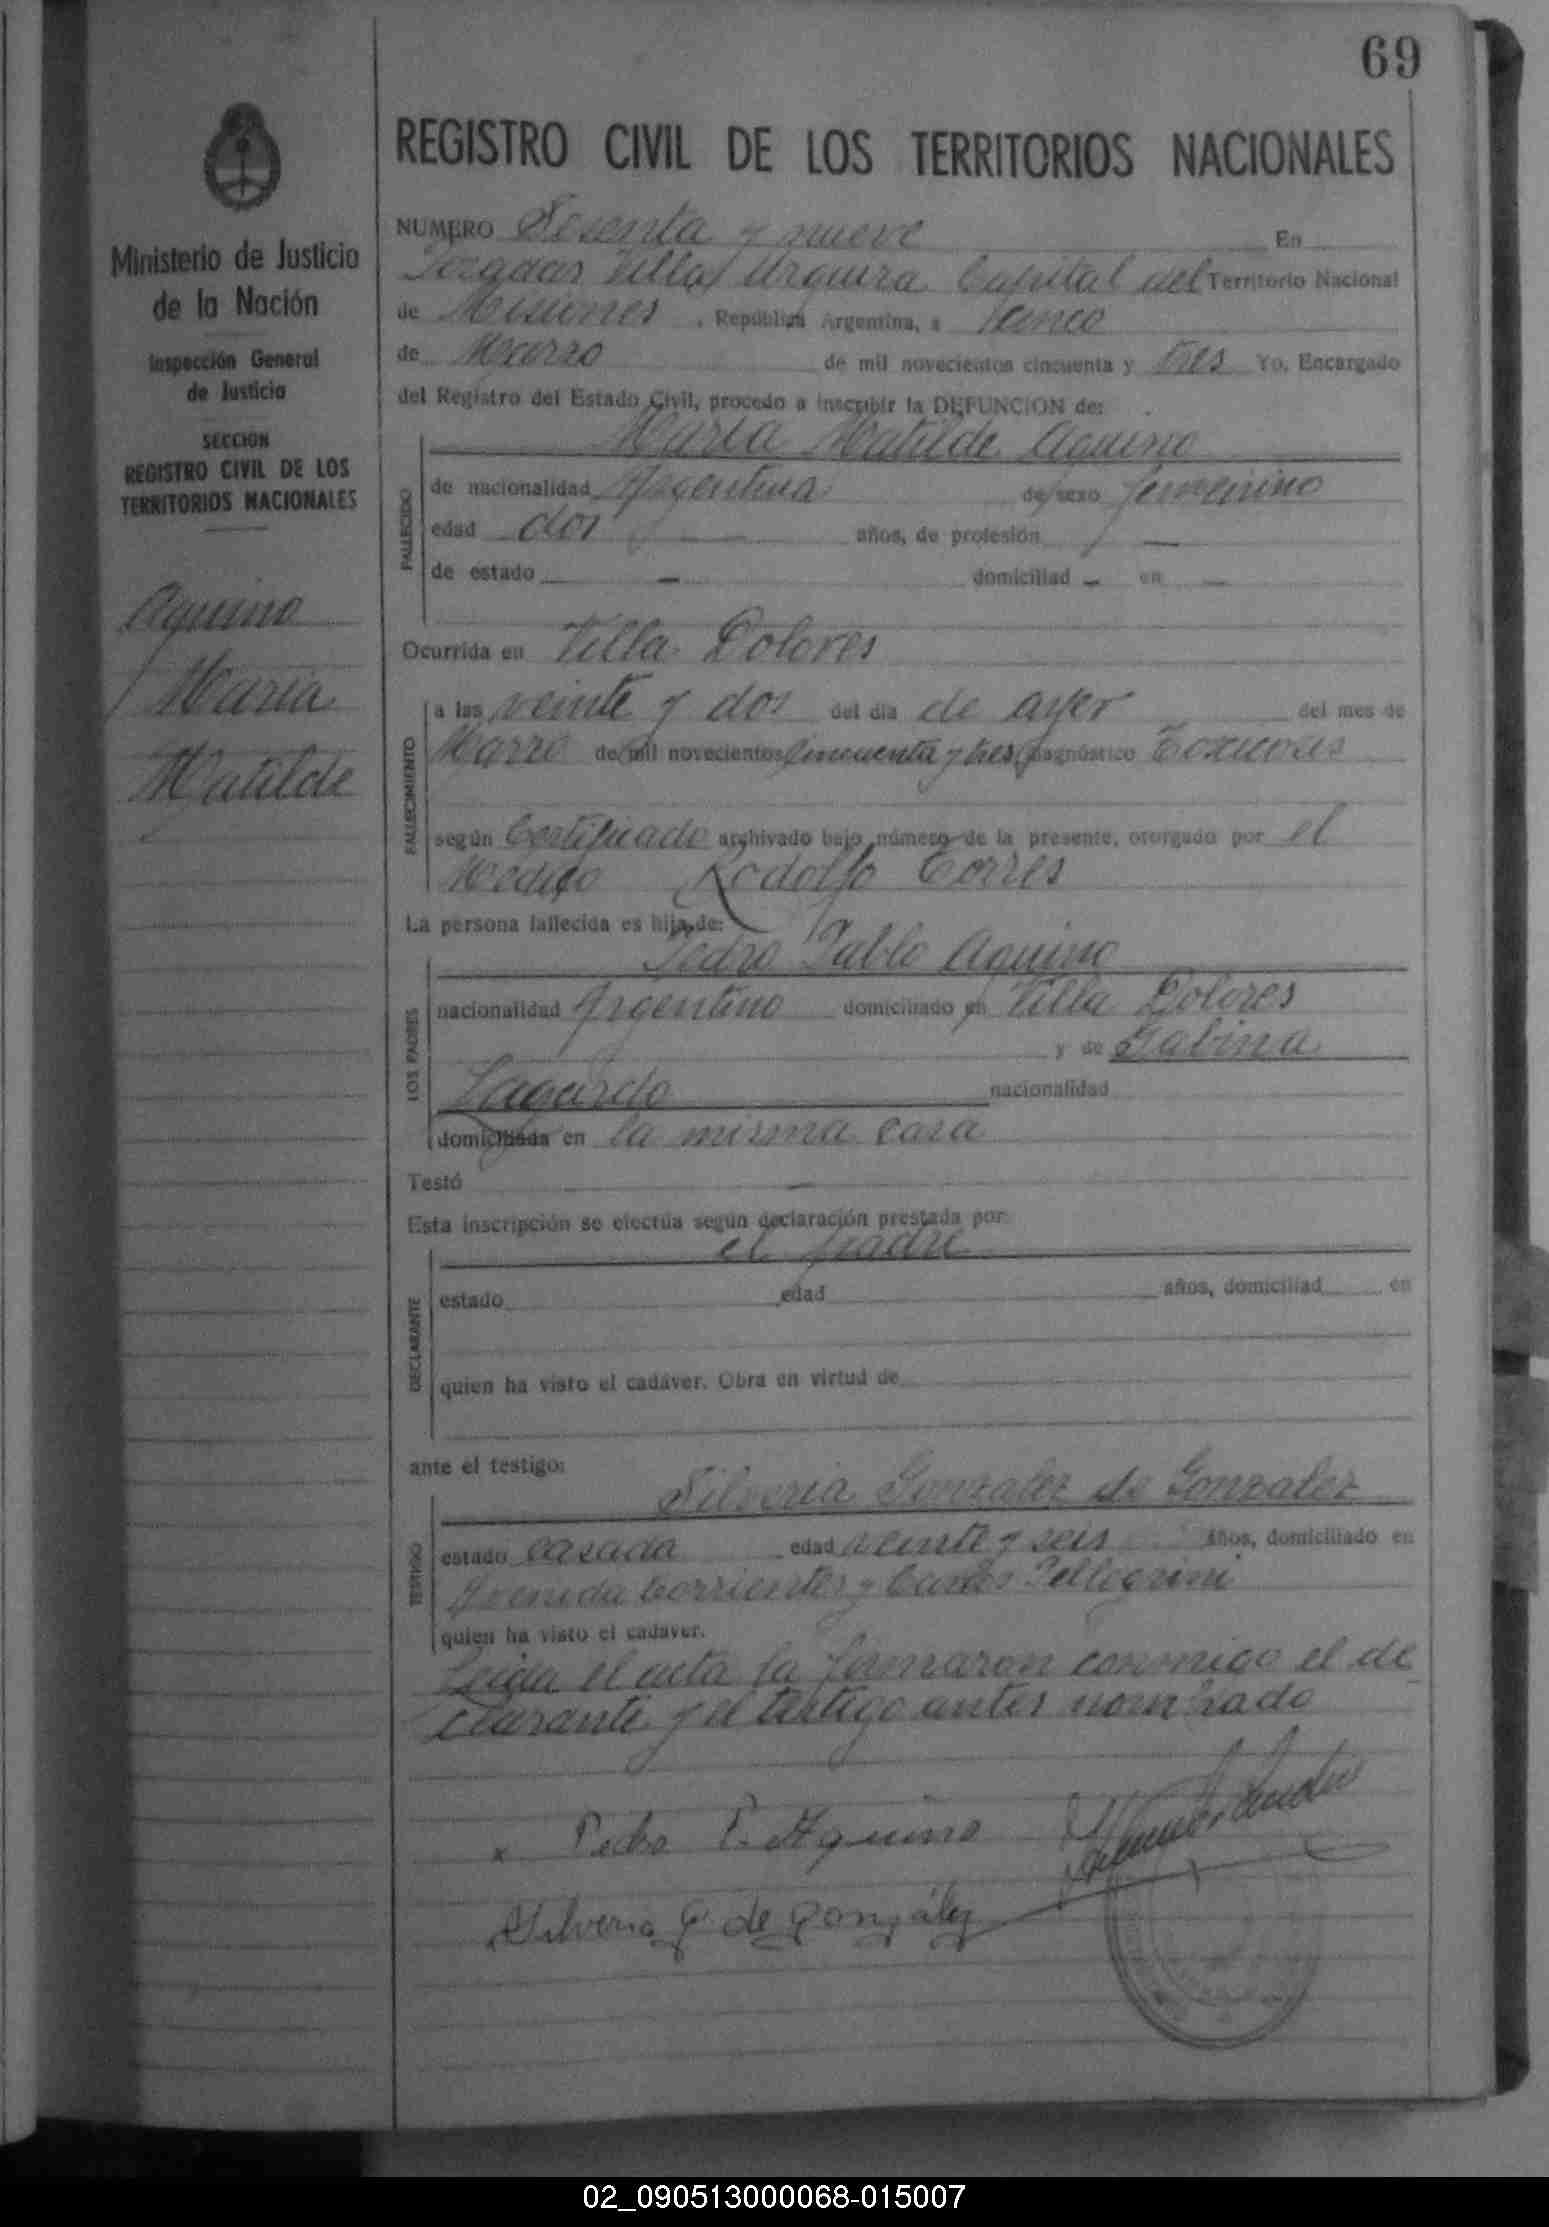 69
REGISTRO CIVIL DE LOS TERRITORIOS NACIONALES
Ministerio de Justicia
de la Nación
Inspección General
de Justicia
SECCION
REGISTRO CIVIL DE LOS
TERRITORIOS NACIONALES
Aquino
Maria
Matilde
NUMERO Sesenta y nueve En
Posadas Villa Urquiza Capital del Territorio Nacional
de Misiones, República Argentina, a cinco
de Marzo de mil novecientos cincuenta y tres Yo, Encargado
del Registro del Estado Civil, procedo a inscribir la DEFUNCION de:
Maria Matilde Aquino
FALLECIDO
de nacionalidad Argentina de sexo femenino
edad dos — años, de profesión —
de estado — domiciliad — en —
Ocurrida en Villa Dolores
FALLECIMIENTO
a las veinte y dos del día de ayer del mes de
Marzo de mil novecientos cincuenta y tres diagnóstico Toxicosis
según Certificado archivado bajo número de la presente, otorgado por el
Medico Rodolfo Torres
La persona fallecida es hija de:
Pedro Pablo Aquino
LOS PADRES
nacionalidad Argentino domiciliado en Villa Dolores
y de Sabina
nacionalidad
domiciliada en la misma casa
Testó —
Esta inscripción se efectúa según declaración prestada por:
el padre
DECLARANTE
estado edad años, domiciliad en
quien ha visto el cadáver. Obra en virtud de
ante el testigo:
Silveria Gonzalez de Gonzalez
TESTIGO
estado casada edad veinte y seis años, domiciliado en
Avenida Corrientes y Carlos Pellegrini
quien ha visto el cadaver.
Leida el acta la firmaron conmigo el de
clarante y el testigo antes nombrado
x Pedro P. Aquino
Silveria G. de González
02_090513000068-015007